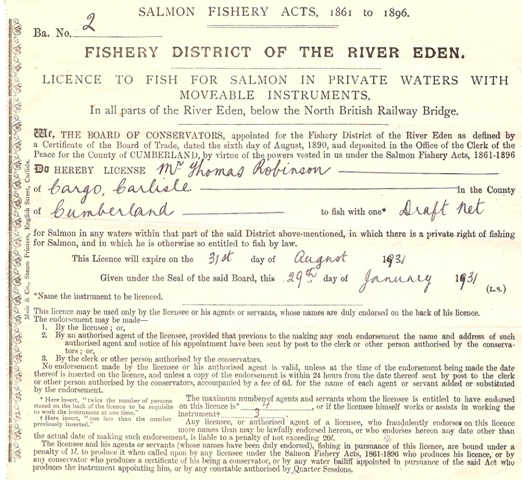 SALMON FISHERY ACTS, 1861 to 1896.
Ba. No. 2
FISHERY DISTRICT OF THE RIVER EDEN.
LICENCE TO FISH FOR SALMON IN PRIVATE WATERS WITH
MOVEABLE INSTRUMENTS,
In all parts of the River Eden, below the North British Railway Bridge.
We, THE BOARD OF CONSERVATORS, appointed for the Fishery District of the River Eden as defined by
a Certificate of the Board of Trade, dated the sixth day of August, 1890, and deposited in the Office of the Clerk of the
Peace for the County of CUMBERLAND, by virtue of the powers vested in us under the Salmon Fishery Acts, 1861-1896
DO HEREBY LICENSE Mr Thomas Robinson
of Cargo, Carlisle in the County
of Cumberland to fish with one* Draft Net
for Salmon in any waters within that part of the said District above-mentioned, in which there is a private right of fishing
for Salmon, and in which he is otherwise so entitled to fish by law.
This Licence will expire on the 31st day of August 1931
Given under the Seal of the said Board, this 29th day of January 1931
(L.S.)
*Name the instrument to be licenced.
This licence may be used only by the licensee or his agents or servants, whose names are duly endorsed on the back of licence.
The endorsement may be made—
1. By the licensee; or,
2. By an authorised agent of the licensee, provided that previous to the making any such endorsement the name and address of such
authorised agent and notice of his appointment have been sent by post to the clerk or other person authorised by the conserva-
tors; or,
3. By the clerk or other person authorised by the conservators.
No endorsement made by the licensee or his authorised agent is valid, unless at the time of the endorsement being made the date
thereof is inserted on the licence, and unless a copy of the endorsement is within 24 hours from the date thereof sent by post to the clerk
or other person authorised by the conservators, accompanied by a fee of 6d. for the name of each agent or servant added or substituted
by the endorsement.
* Here insert, "twice the number of persons
stated on the back of the licence to be requisite
to work the instrument at one time."
† Here insert, "one less than the number
previously inserted."
The maximum number of agents and servants whom the licensee is entitled to have endorsed
on this licence is* 4, or if the licensee himself works or assists in working the
instrument† 3
Any licensee, or authorised agent of a licensee, who fraudulently endorses on this licence
more names than may be lawfully endorsed hereon, or who endorses hereon any date other than
the actual date of making such endorsement, is liable to a penalty of not exceeding 20l.
The licensee and his agents or servants (whose names have been duly endorsed), fishing in pursuance of this licence, are bound under a
penalty of 1l. to produce it when called upon by any licensee under the Salmon Fishery Acts, 1861-1896 who produces his licence, or by
any conservator who produces a certificate of his being a conservator, or by any water bailiff appointed in pursuance of the said Act who
produces the instrument appointing him, or by any constable authorised by Quarter Sessions.
Muir & Co., Steam Printers, English Street, Carlisle.